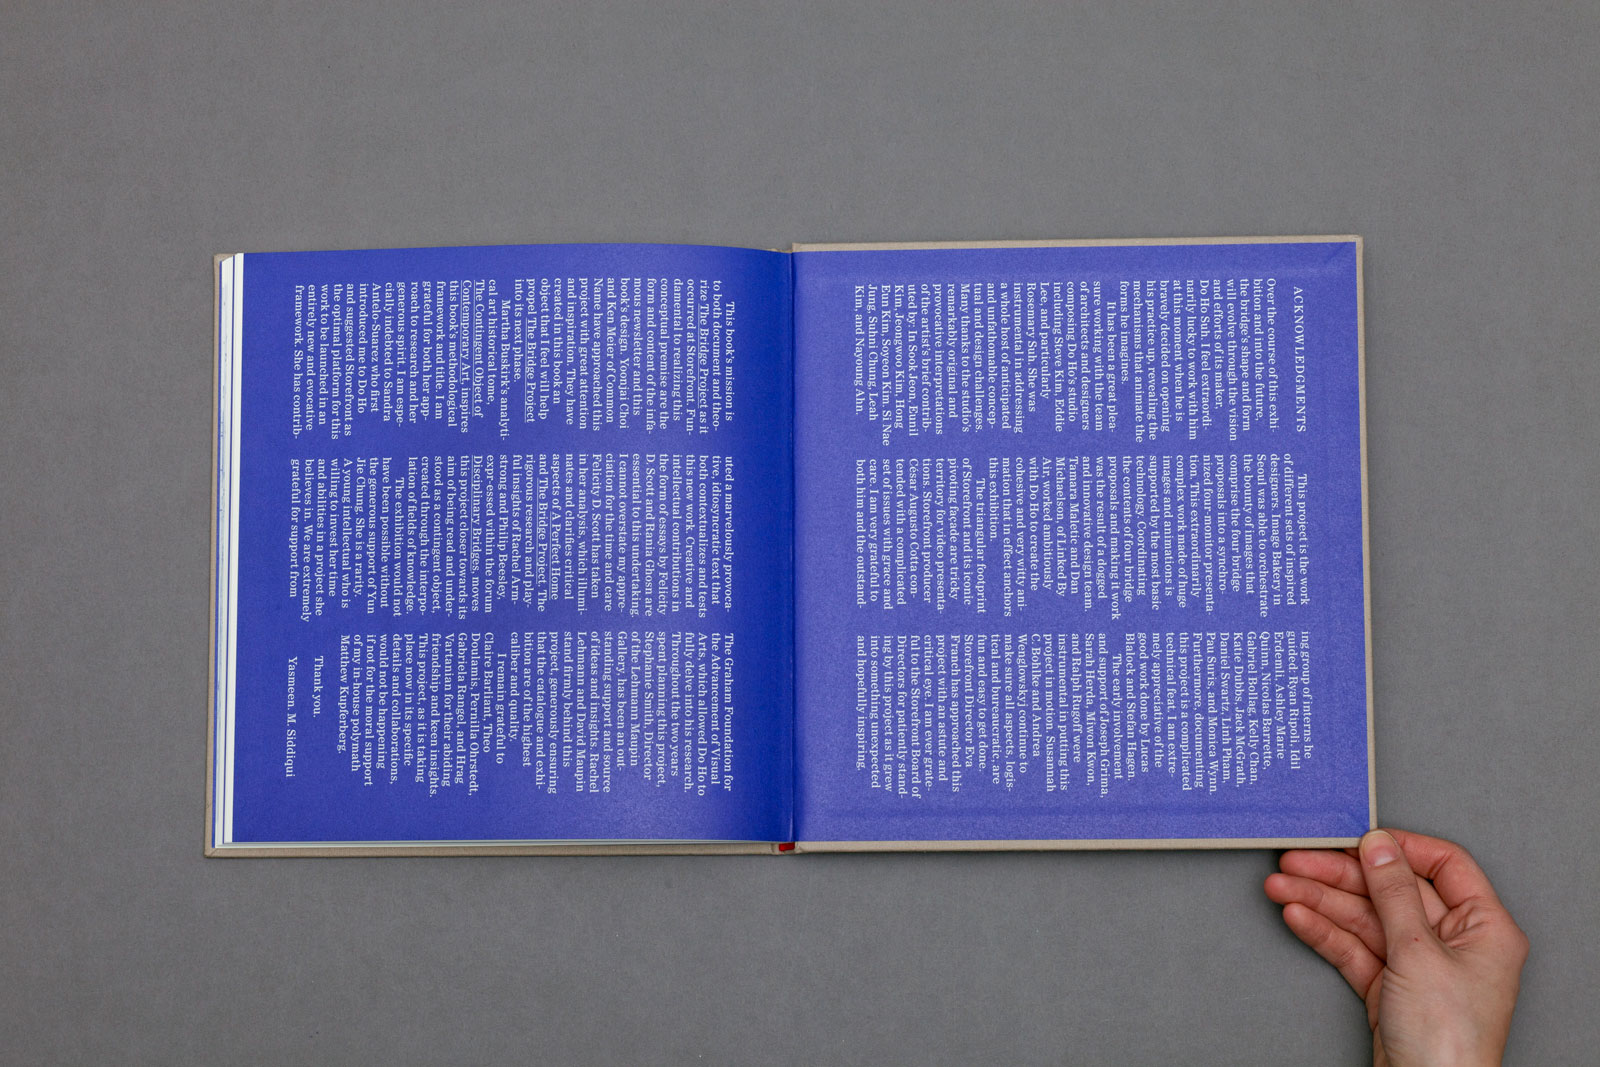 ACKNOWLEDGMENTS
Over the course of this exhi-
bition and into the future,
the bridge's shape and form
will evolve through the vision
and efforts of its maker,
Do Ho Suh. I feel extraordi-
narily lucky to work with him
at this moment when he is
bravely decided on opening
his practice up, revealing the
mechanisms that animate the
forms he imagines.
It has been a great plea-
sure working with the team
of architects and designers
composing Do Ho's studio
including Steve Kim, Eddie
Lee, and particularly
Rosemary Suh. She was
instrumental in addressing
a whole host of anticipated
and unfathomable concep-
tual and design challenges.
Many thanks to the studio's
remarkably original and
provocative interpretations
of the artist's brief contrib-
uted by: In Sook Jeon, Eunil
Kim, Jeongwoo Kim, Hong
Eun Kim, Soyeon Kim, Si Nae
Jung, Suhni Chung, Leah
Kim, and Nayoung Ahn.
This project is the work
of different sets of inspired
designers. Image Bakery in
Seoul was able to orchestrate
the bounty of images that
comprise the four bridge
proposals into a synchro-
nized four-monitor presenta-
tion. This extraordinarily
complex work made of huge
images and animations is
supported by the most basic
technology. Coordinating
the contents of four bridge
proposals and making it work
was the result of a dogged
and innovative design team.
Tamara Maletic and Dan
Michaelson, of Linked By
Air, worked ambitiously
with Do Ho to create the
cohesive and very witty ani-
mation that in effect anchors
this exhibition.
The triangular footprint
of Storefront and its iconic
pivoting façade are tricky
territory for video presenta-
tions. Storefront producer
César Augusto Cotta con-
tended with a complicated
set of issues with grace and
care. I am very grateful to
both him and the outstand-
ing group of interns he
guided. Ryan Ripoli, Idil
Erdemli, Ashley Marie
Quinn, Nicolas Barrette,
Gabriel Bollag, Kelly Chan,
Katie Dubbs, Jack McGrath,
Daniel Swartz, Linh Pham,
Pau Suris, and Monica Wynn.
Furthermore, documenting
this project is a complicated
technical feat I am extre-
mely appreciative of the
good work done by Lucas
Blalock and Stefan Hagen.
The early involvement
and support of Joseph Grima,
Sarah Herda, Miwon Kwon,
and Ralph Rugoff were
instrumental in putting this
project in motion. Susannah
C. Bohlke and Andrea
Wenglowskyj continue to
make sure all aspects, logis-
tical and bureaucratic, are
fun and easy to get done.
Storefront Director Eva
Franch has approached this
project with an astute and
critical eye. I am ever grate-
ful to the Storefront Board of
Directors for patiently stand-
ing by this project as it grew
into something unexpected
and hopefully inspiring.
This book's mission is
to both document and theo-
rize The Bridge Project as it
occurred at Storefront. Fun-
damental to realizing this
conceptual premise are the
form and content of the infa-
mous newsletter and this
book's design. Yoonjai Choi
and Ken Meier of Common
Name have approached this
project with great attention
and inspiration. They have
created in this book an
object that I feel will help
propel The Bridge Project
into its next phase.
Martha Buskirk's analyti-
cal art historical tome,
The Contingent Object of
Contemporary Art, inspires
this book's methodological
framework and title. I am
grateful for both her app-
roach to research and her
generous spirit. I am espe-
cially indebted to Sandra
Antelo-Suarez who first
introduced me to Do Ho
and suggested Storefront as
the optimal platform for this
work to be launched in an
entirely new and evocative
framework. She has contrib-
uted a marvelously provoca-
tive, idiosyncratic text that
both contextualizes and tests
this new work. Creative and
intellectual contributions in
the form of essays by Felicity
D. Scott and Rania Ghosn are
essential to this undertaking.
I cannot overstate my appre-
ciation for the time and care
Felicity D. Scott has taken
in her analysis, which illumi-
nates and clarifies critical
aspects of A Perfect Home
and The Bridge Project. The
rigorous research and play-
ful insights of Rachel Arm-
strong and Philip Beesley,
expressed within the forum
Disciplinary Bridges, moves
this project closer towards its
aim of being read and under-
stood as a contingent object,
created through the interpo-
lation of fields of knowledge.
The exhibition would not
have been possible without
the generous support of Yun
Jie Chung. She is a rarity.
A young intellectual who is
willing to invest her time
and abilities in a project she
believes in. We are extremely
grateful for support from
The Graham Foundation for
the Advancement of Visual
Arts, which allowed Do Ho to
fully delve into his research.
Throughout the two years
spent planning this project,
Stephanie Smith, Director
of the Lehmann Maupin
Gallery, has been an out-
standing support and source
of ideas and insights. Rachel
Lehmann and David Maupin
stand firmly behind this
project, generously ensuring
that the catalogue and exhi-
bition are of the highest
caliber and quality.
I remain grateful to
Claire Barliant, Theo
Coulamis, Pernilla Ohrstedt,
Gabriela Rangel, and Hrag
Vartanian for their abiding
friendship and keen insights.
This project, as it is taking
place now in its specific
details and collaborations,
would not be happening
if not for the moral support
of my in-house polymath
Matthew Kupferberg.
Thank you.
Yasmeen. M Siddiqui